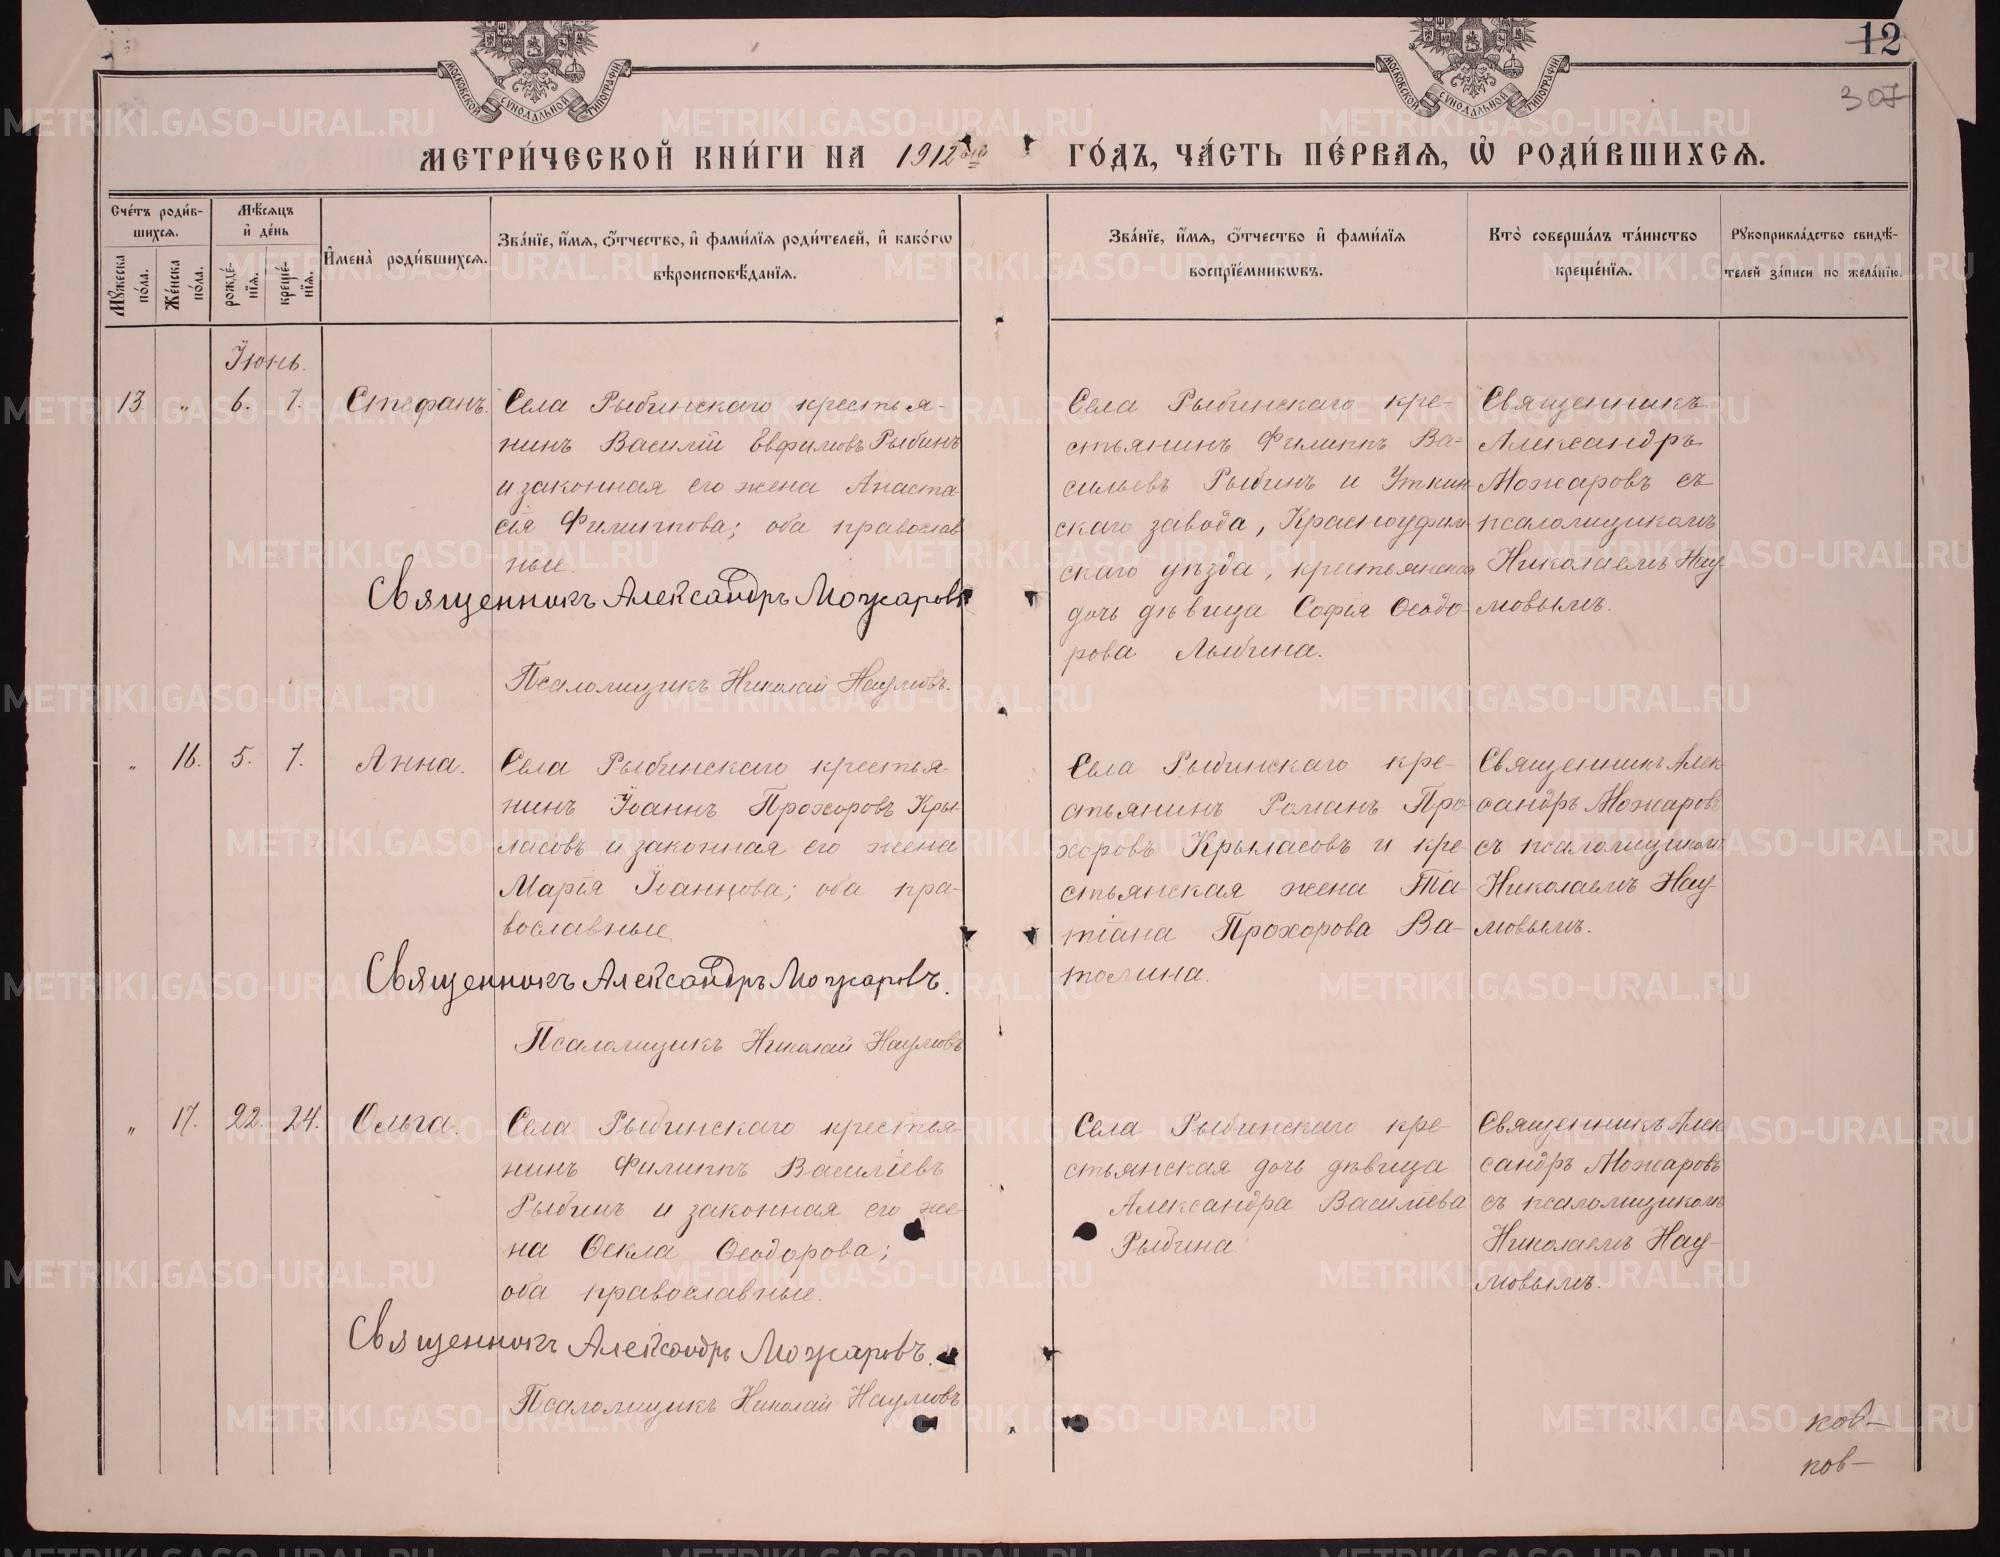 МОСКОВСКОЙ СѴНОДАЛЬНОЙ ТИПОГРАФІИ
МОСКОВСКОЙ СѴНОДАЛЬНОЙ ТИПОГРАФІИ
12
307
МЕТРИ́ЧЕСКОЙ КНИ́ГИ НА 1912 ГО́ДЪ, ЧА́СТЬ ПЕ́РВАЯ, Ѡ҆ РОДИ́ВШИХСЯ.
Сче́тъ роди́в-
шихся.
Мꙋжеска по́ла.
Же́нска по́ла.
Мѣ́сяцъ
и҆ де́нь
рожде́-
нїя.
креще́-
нїя.
И҆мена̀ роди́вшихся.
Зва́нїе, и҆́мя, ѻ҆́тчество, и҆ фами́лїя роди́телей, и҆ како́гѡ
вѣроисповѣ́данїя.
Зва́нїе, и҆́мя, ѻ҆́тчество и҆ фами́лїя
воспрїе́мникѡвъ.
Кто̀ соверша́лъ та́инство
креще́нїя.
Рꙋкоприкла́дство свидѣ́-
телей за́писи по жела́нїю.
Іюнь.
13. „ 6. 7. Стефанъ.
Села Рыбинскаго крестья-
нинъ Василій Евфимовъ Рыбинъ
и законная его жена Анаста
сія Филиппова; оба православ
ные.
Священникъ Александръ Можаровъ
Псаломщикъ Николай Наумовъ.
Села Рыбинскаго кре-
стьянинъ Филиппъ Ва-
сильевъ Рыбинъ и Уткин
скаго завода, Красноуфим
скаго уѣзда, крестьянская
дочь дѣвица Софія Ѳеодо-
рова Лыбина.
Священникъ
Александръ
Можаровъ съ
псаломщикомъ
Николаемъ Нау
мовымъ.
„ 16. 5. 7. Анна.
Села Рыбинскаго крестья-
нинъ Іоаннъ Прохоровъ Кры
ласовъ и законная его жена
Марія Іоаннова; оба пра-
вославные
Священникъ Александръ Можаровъ.
Псаломщикъ Николай Наумовъ
Села Рыбинскаго кре-
стьянинъ Романъ Про
хоровъ Крыласовъ и кре-
стьянская жена Та-
тіана Прохорова Ва-
толина.
Священникъ Алек
сандръ Можаровъ
съ псаломщикомъ
Николаемъ Нау-
мовымъ.
„ 17. 22. 24. Ольга.
Села Рыбинскаго крестья
нинъ Филиппъ Василіевъ
Рыбинъ и законная его же-
на Ѳекла Ѳеодорова;
оба православные.
Священникъ Александръ Можаровъ.
Псаломщикъ Николай Наумовъ
Села Рыбинскаго кре
стьянская дочь дѣвица
Александра Василіева
Рыбина
Священникъ Алек
сандръ Можаровъ
съ псаломщикомъ
Николаемъ Нау-
мовымъ.
ков-
ков-
METRIKI.GASO-URAL.RU